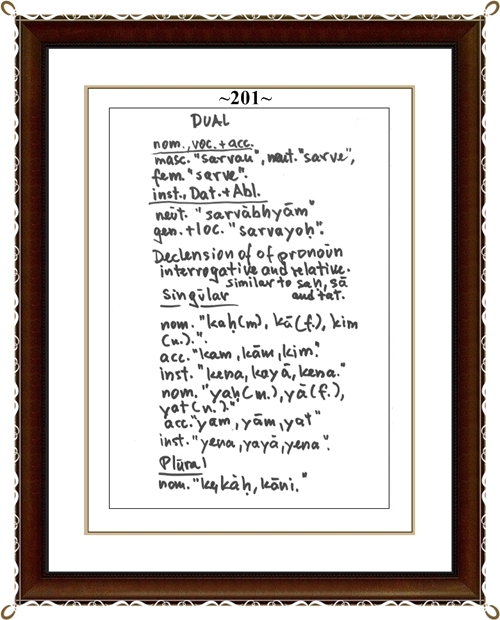 ~201~
DUAL
nom., voc. + acc.
masc. "sarvau", neut. "sarve",
fem. "sarve".
inst., Dat. + Abl.
neūt. "sarvàbhyām"
gen. + loc. "sarvayoḥ".
Declension of of pronoūn
interrogative and relative.
similar to saḥ, sā
and tat.
Singūlar
nom. "kaḥ(m), kā(f.), kim
(n.).".
acc. "kam, kām, kim."
inst. "kena, kayā, kena."
nom. "yaḥ(m.), yā(f.),
yat(n.)."
acc. "yam, yām, yat"
inst. "yena, yayā, yena".
Plūral
nom. "ke, kàḥ, kāni."